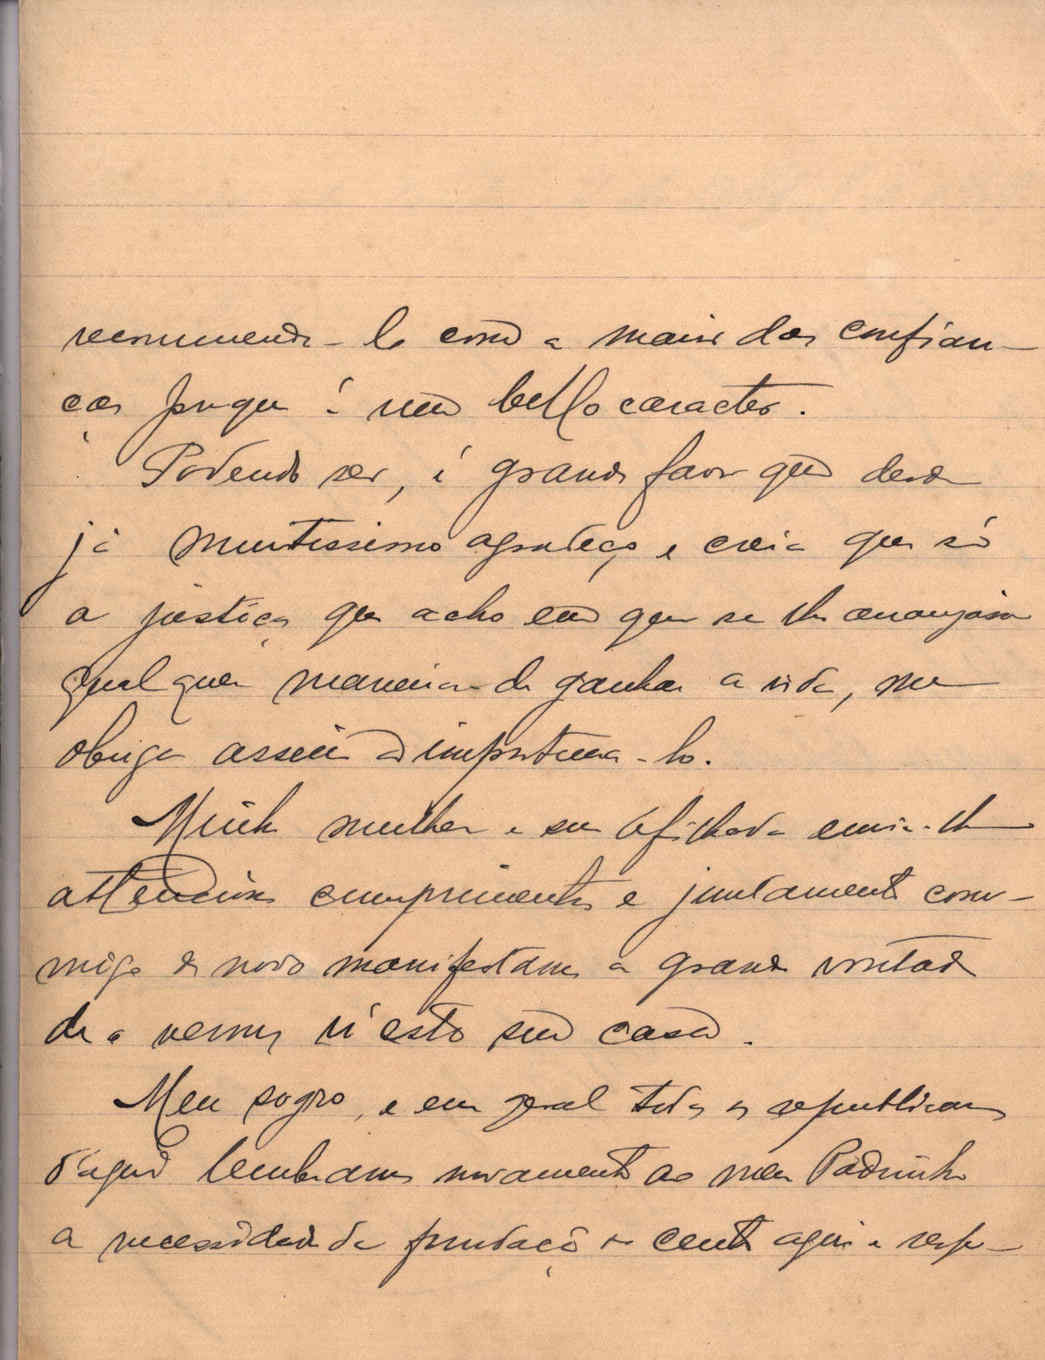 recommenda-lo com a maior das confian-
ças porque é um bello caracter.
Podendo ser, é grande favor que desde
já muitissimo agradeço e creia que só
a justiça que acho em que se lhe arranjasse
qualquer maneira de ganhar a vida, me
obriga assim a importuna-lo.
Minha mulher e sua afilhada envia-lhe
attenciosos cumprimentos e juntamente com-
migo de novo manifestam a grande vontade
de o vermos n'esta sua casa.
Meu sogro, e em geral todos os republicanos
d'aqui lembram novamente ao meu Padrinho
a necessidade da fundação do centro aqui e